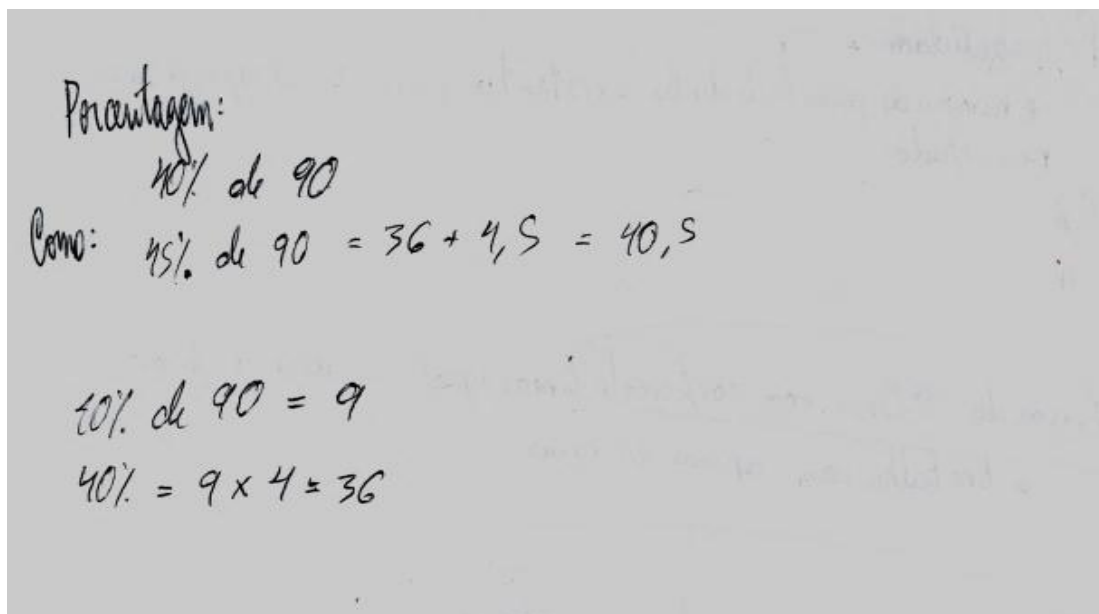 Porcentagem:
40% de 90
Como: 45% de 90 = 36 + 4,5 = 40,5
10% de 90 = 9
40% = 9 x 4 = 36